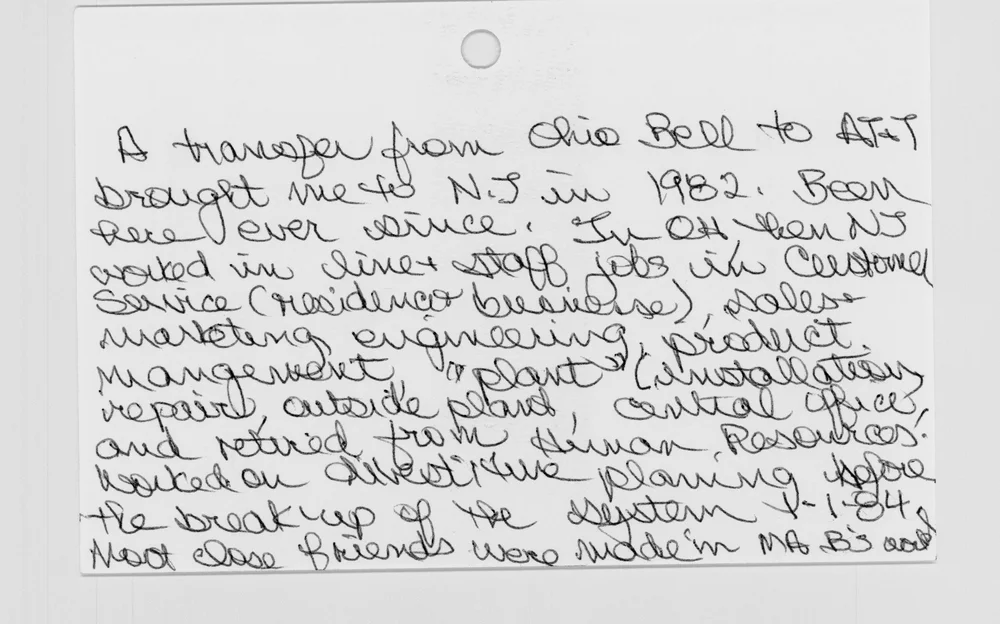 A transfer from Ohio Bell to AT&T
brought me to N.J in 1982. Been
here ever since. In OH, then NJ
worked in line + staff jobs in Customer
Service (residence + business), sales +
marketing, engineering, product
mangement, "plant" (installation,
repair, outside pland, central office,
and retired from Human Resources.
Worked on divestitive planning before
the break-up of the System 1-1-84.
Most close friends were made in MA B's and